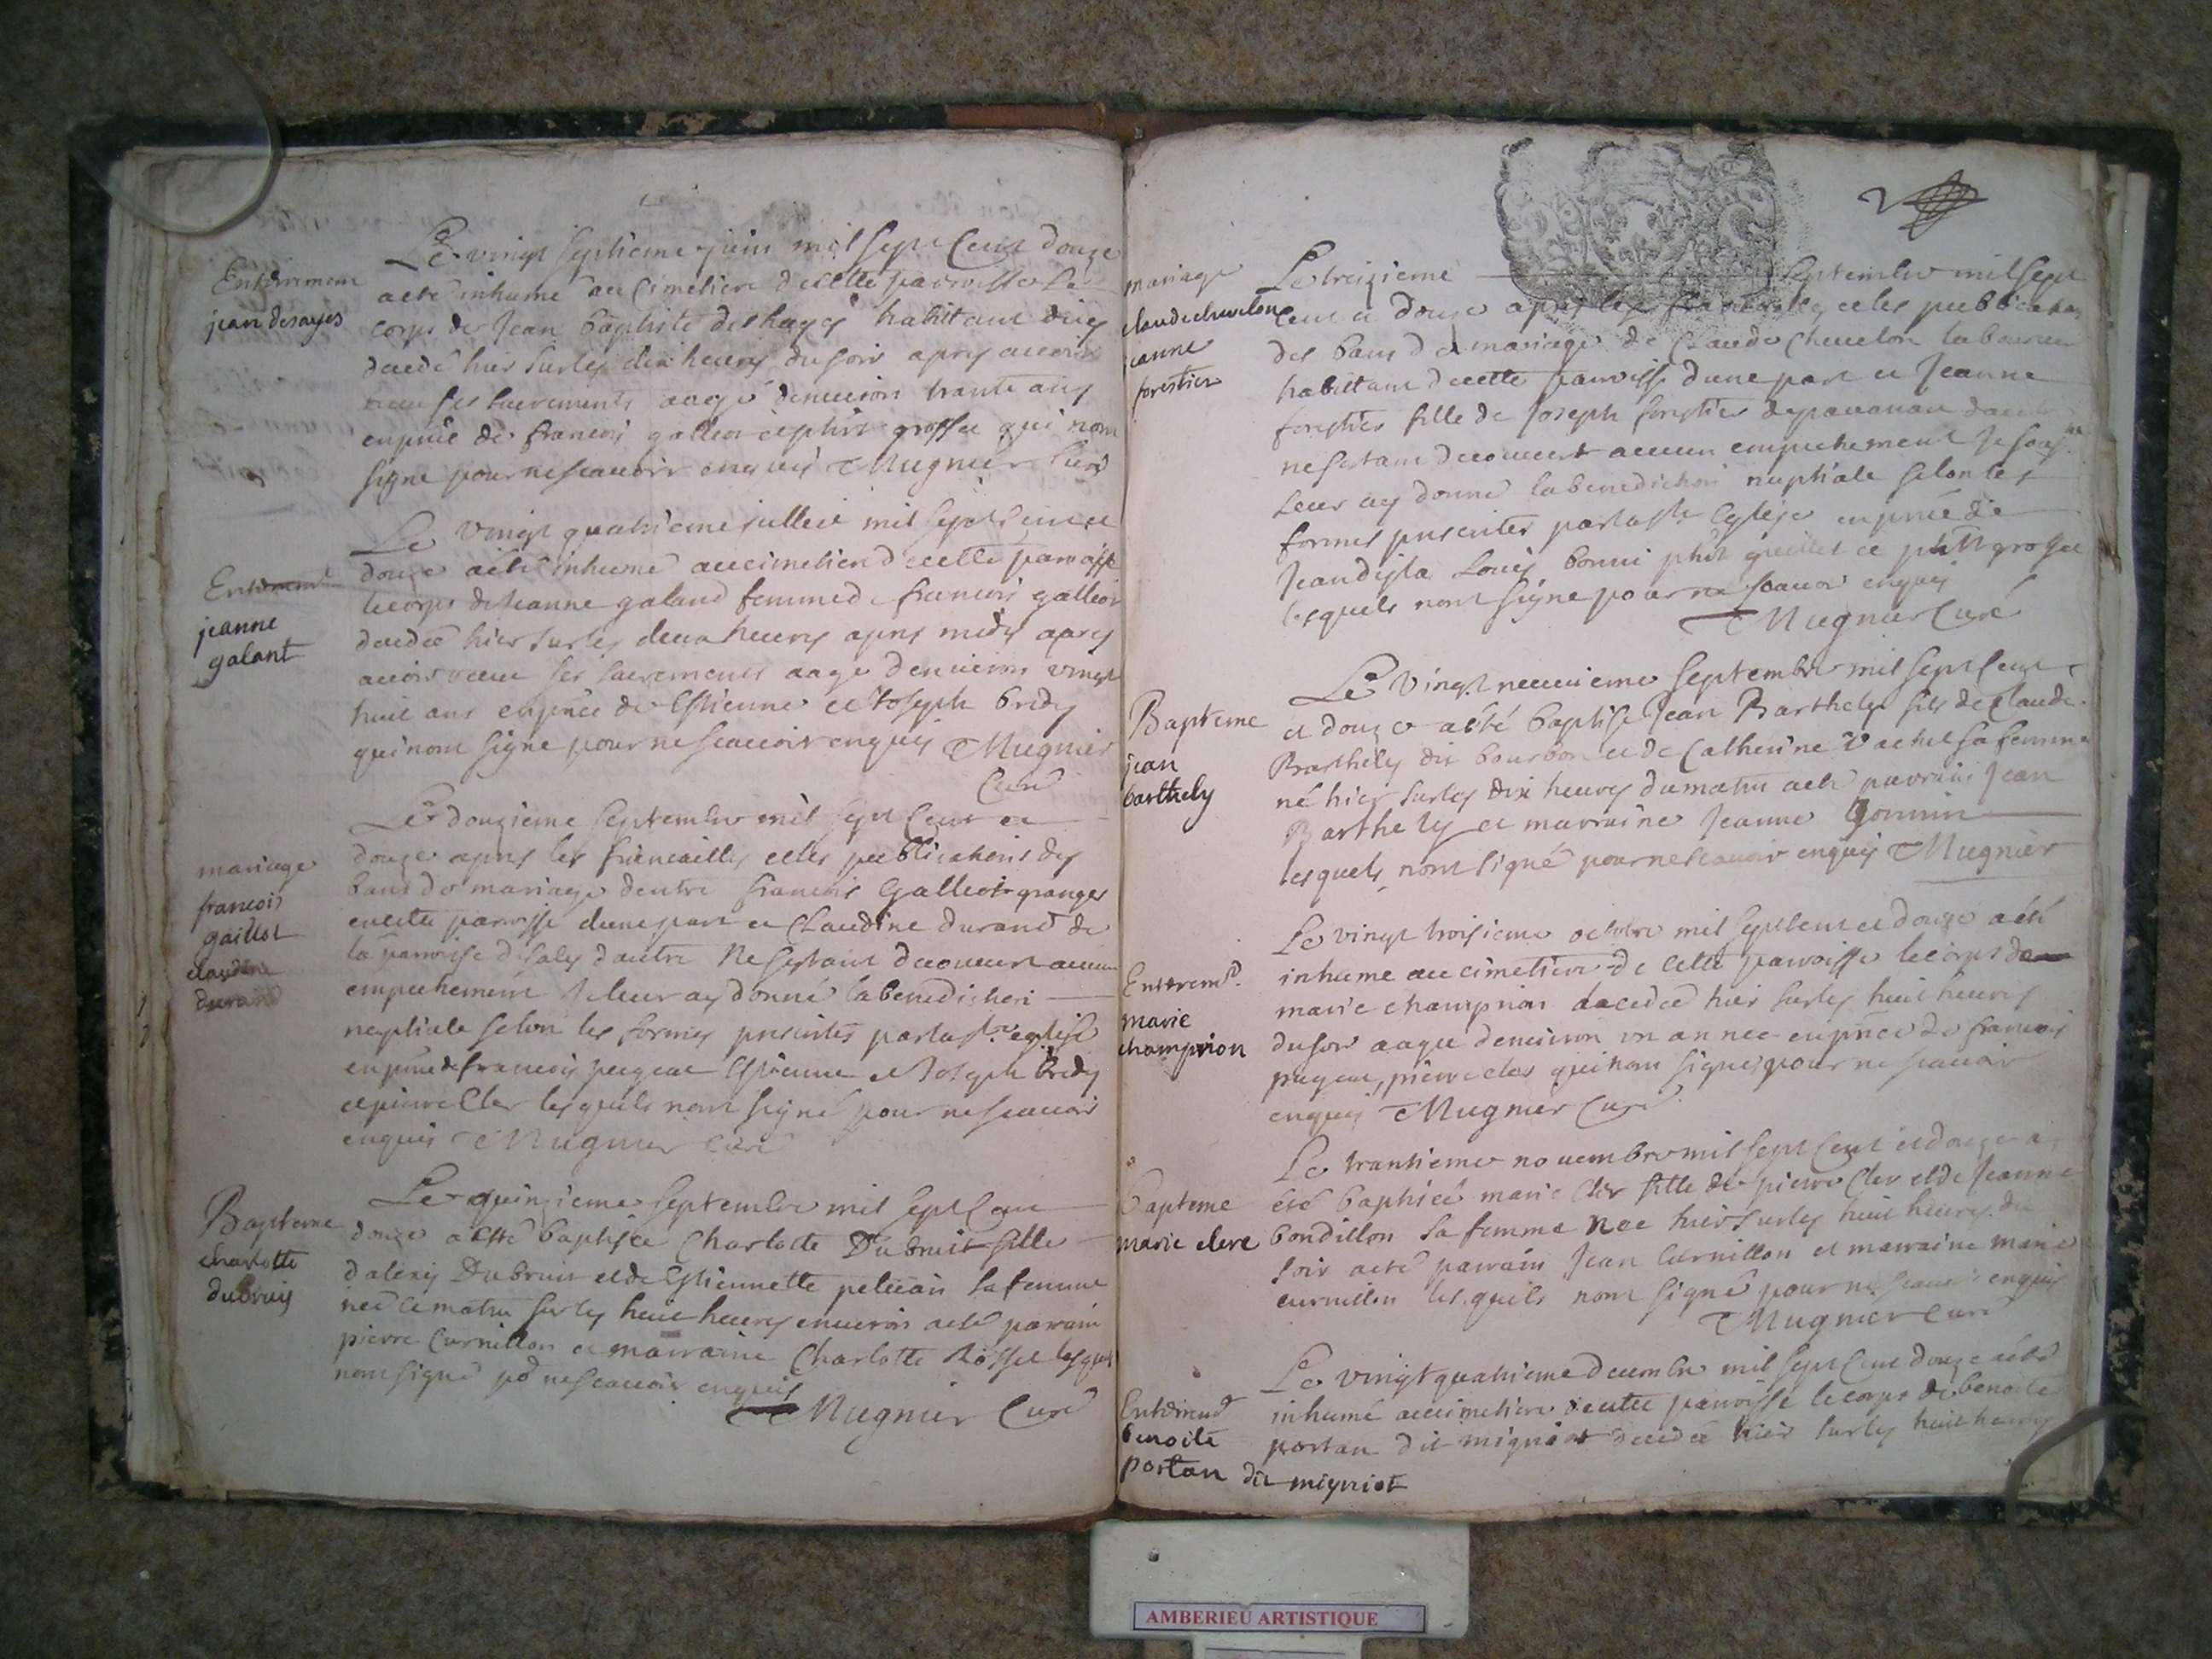 Enterrement
jean desayes
Le vingt septieme juin mil sept Cent douze
a eté inhumé au Cimetiere de cette parroisse le
corps de Jean baptiste deshayes habitant
decedé hier sur les dix heures du soir apres avoir
receu ses sacrements aagé denuiron trante ans
en pñce de francois galliot et phïrt grossee qui nont
signe pour ne scauoir enquis Mugnier Curé
Enterement
jeanne
galant
Le vingt quatrieme iullet mil sept Cent et
douze a eté inhumé au cimetiere de cette parroisse
le corps de Jeanne galand femme de francois galliot
decedeé hier sur les deux heures apres midy apres
auoir receu ses sacrements aage denuiron vingt
huit ans en pñce de Estienne et Joseph bredy
qui nont signe pour ne scauoir enquis Mugnier
Curé
mariage
francois
gaillot
claudine
durand
Le douzieme septembre mil sept Cent et
douze apres les fiancailles et les publications des
bans de mariage dentre francois Galliot granger
en cette parroisse dune part et Claudine durand de
la parroisse de saly dautre Ne sestant decouuert aucun
empechement Je leur ay donné la benediction
nuptiale selon les formes prescrites par la ste eglise
en pñce de francois pugeat Estienne et Joseph bredy
et pierre Cler lesquels nont signé pour ne scauoir
enquis Mugnier Curé
Bapteme
charlotte
dubruis
Le quinzieme septembre mil sept Cent
douze a esté baptisee Charlotte Dubruit fille
dalexis Dubruit et de Estiennette pelican sa femme
neé ce matin sur les huit heures enuiron a eté parrain
pierre Curnillon et marraine Charlotte Rosset lesquels
nont signé pr ne scauoir enquis
Mugnier Curé
2
mariage
claude cheuelon
jeanne
forestier
Le treizieme septembre mil sept
Cent et douze apres les fiancailles et les publications
des bans de mariage de Claude Cheuelon laboureur
habitant de cette parroisse dune part et Jeanne
forestier fille de Joseph forestier
ne sestant decouuert aucun empechement Je sousné
leur ay donné la benediction nuptiale selon les
formes prescrites par la ste Eglise en pñce de
Louis bonni
lesquels nont signe pour ne scauoir enquis
Mugnier Curé
Bapteme
jean
barthely
Le vingt neuuieme septembre mil sept Cent
et douze a eté baptisé Jean Barthely fils de Claude
Barthely dit bourbon et de Catherine Vachet sa femme
né hier sur les dix heures du matin a eté parrain Jean
Barthely et marraine Jeanne Gonnin
lesquels nont signé pour ne scauoir enquis Mugnier
Enteremt.
marie
champion
Le vingt troisieme octobre mil sept Cent et douze a eté
inhumé au cimetiere de cette parroisse le corps de
marie champion decedeé hier sur les huit heures
du soir aageé denuiron vn an neé en pñce de francois
pugeat, pierre cler qui nont signes pour ne scauoir
enquis Mugnier Curé
bapteme
marie clere
Le trantieme nouembre mil sept Cent et douze a
eté baptiseé marie Cler fille de pierre Cler et de Jeanne
bondillon sa femme Neé hier sur les huit heures du
soir a eté parrain Jean Curnillon et marraine marie
curnillon lesquels nont signé pour ne scauoir enquis
Mugnier Curé
Enteremt
benoite
portan dit migniot
Le vingt quatrieme decembre mil sept Cent douze a eté
inhumé au cimetiere de cette parroisse le corps de benoite
portan dit migniot decedeé hier sur les huit heures
AMBERIEU ARTISTIQUE